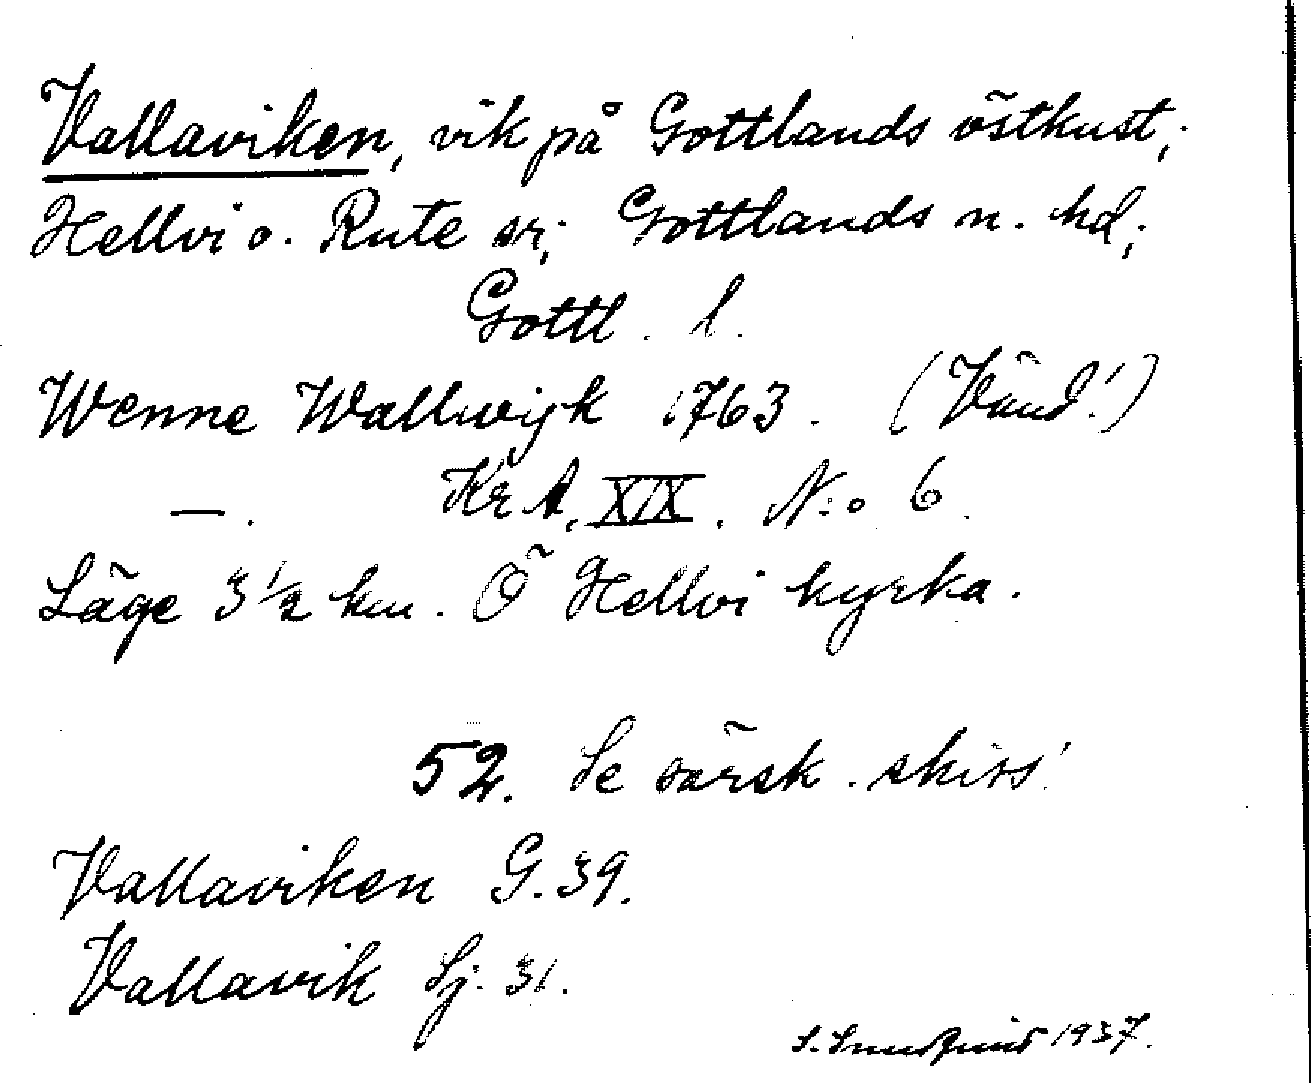 Vallaviken, vik på Gottlands östkust;
Hellvi o. Rute sr; Gottlands n. hd;
Gottl. l.
Wenne Wallwijk 1763. (Vänd!)
—. Kr A, XIX. N:o 6.
Läge 3 1/2 km. Ö Hellvi kyrka.
52. Se särsk. skiss!
Vallaviken G. 39.
Vallavik Sj. 31.
S. 1937.